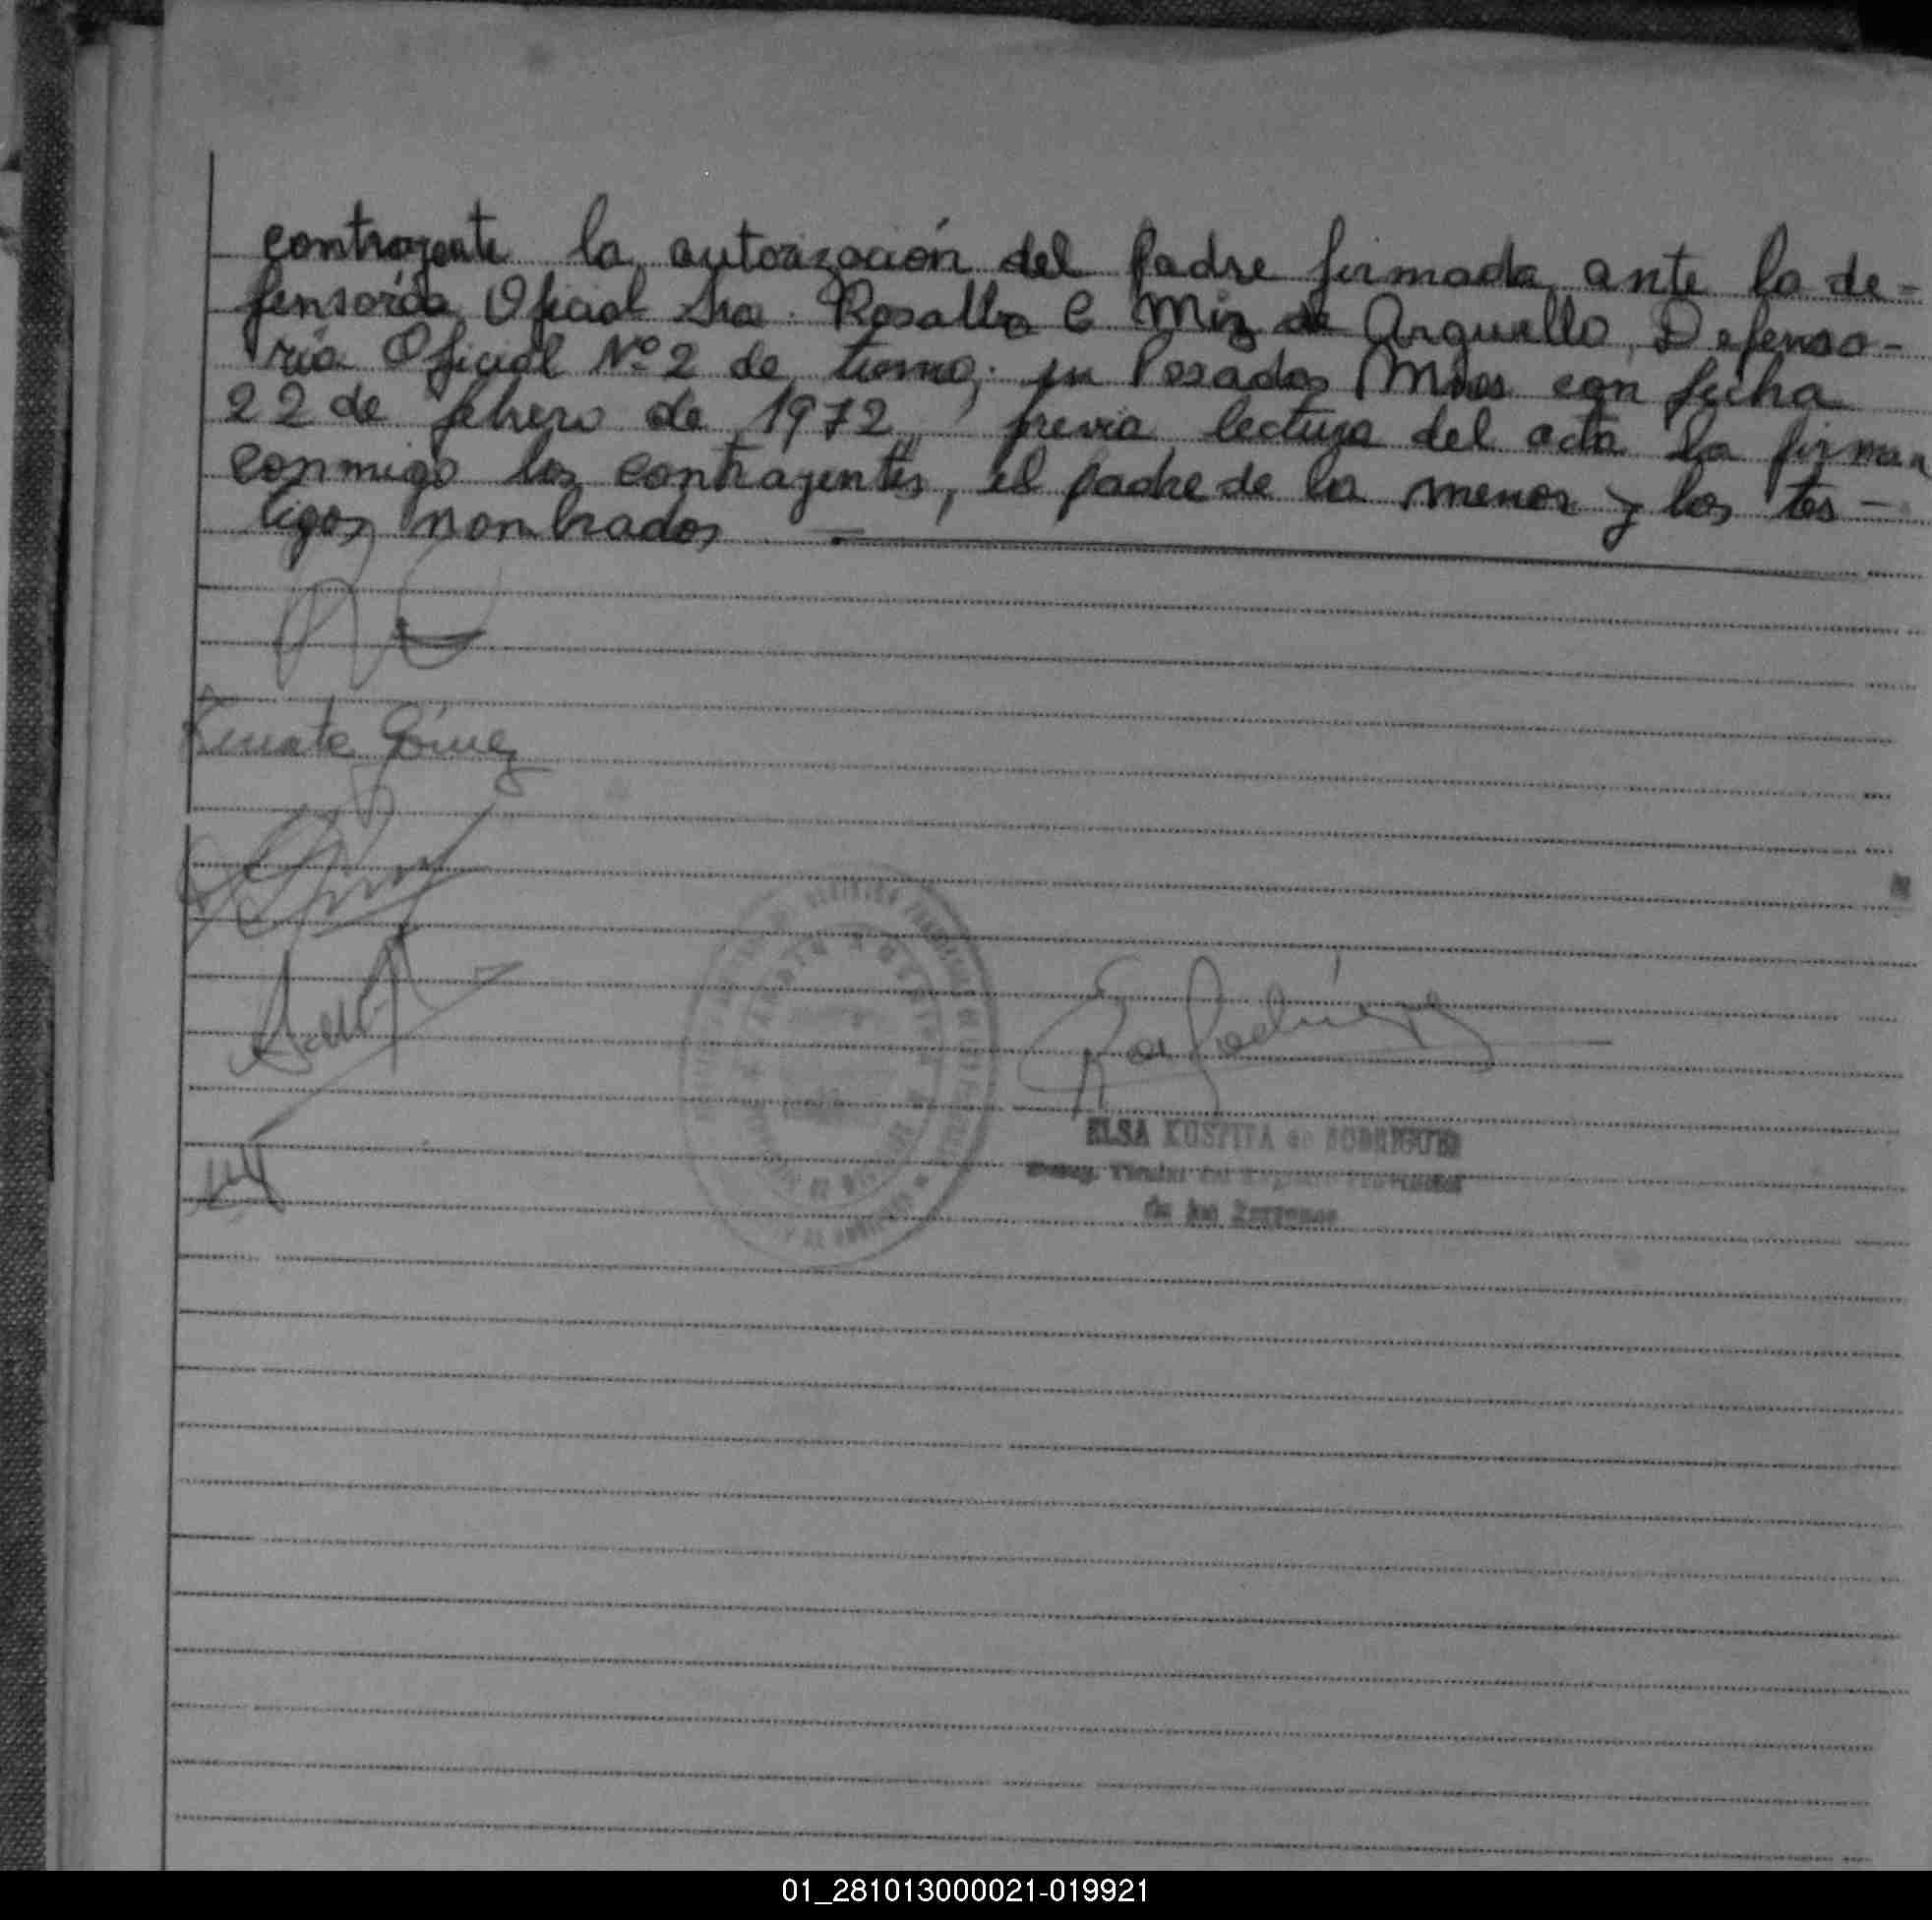 contrayente la autorización del Padre firmada ante la de-
fensoría Oficial Sra. Rosalba C Miz de Arguello, Defenso-
ría Oficial Nº 2 de turno; en Posadas Mnes con fecha
22 de febrero de 1972, previa lectura del acta la firman
conmigo los contrayentes, el padre de la menor y los tes-
tigos nombrados
Renata Gómez
ELSA KUSPITA de RODRIGUEZ
Titular del Registro Provincial
de las Personas
01_281013000021-019921